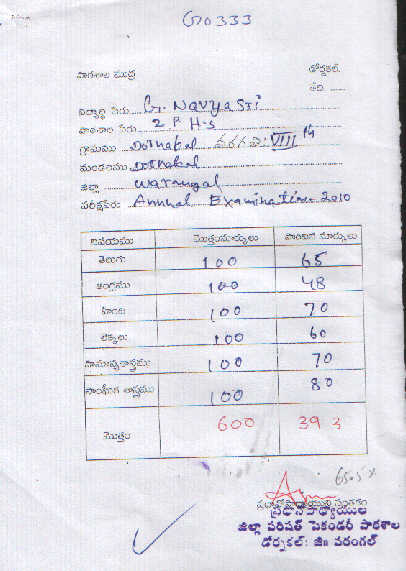 GO333
పాఠశాల ముద్ర డోర్నకల్.
తేది
విద్యార్థి పేరు G. Navya Sri
పాఠశాల పేరు Z P H-S
గ్రామము Dornakal తరగతి: VIII th
మండలము Dornakal
జిల్లా Warangal
పరీక్షపేరు: Annual Examination 2010
విషయము మొత్తంమార్కులు పొందిన మార్కులు
తెలుగు 100 65
ఆంగ్లము 100 48
హింది 100 70
లెక్కలు 100 60
సామాన్యశాస్త్రము 100 70
సాంఘీక శాస్త్రము 100 80
మొత్తం 600 393
65.5 %
ప్రధానోపాధ్యాయుని సంతకం
ప్రధానోపాధ్యాయులు
జిల్లా పరిషత్ సెకండరీ పాఠశాల
డోర్నకల్: జిః వరంగల్